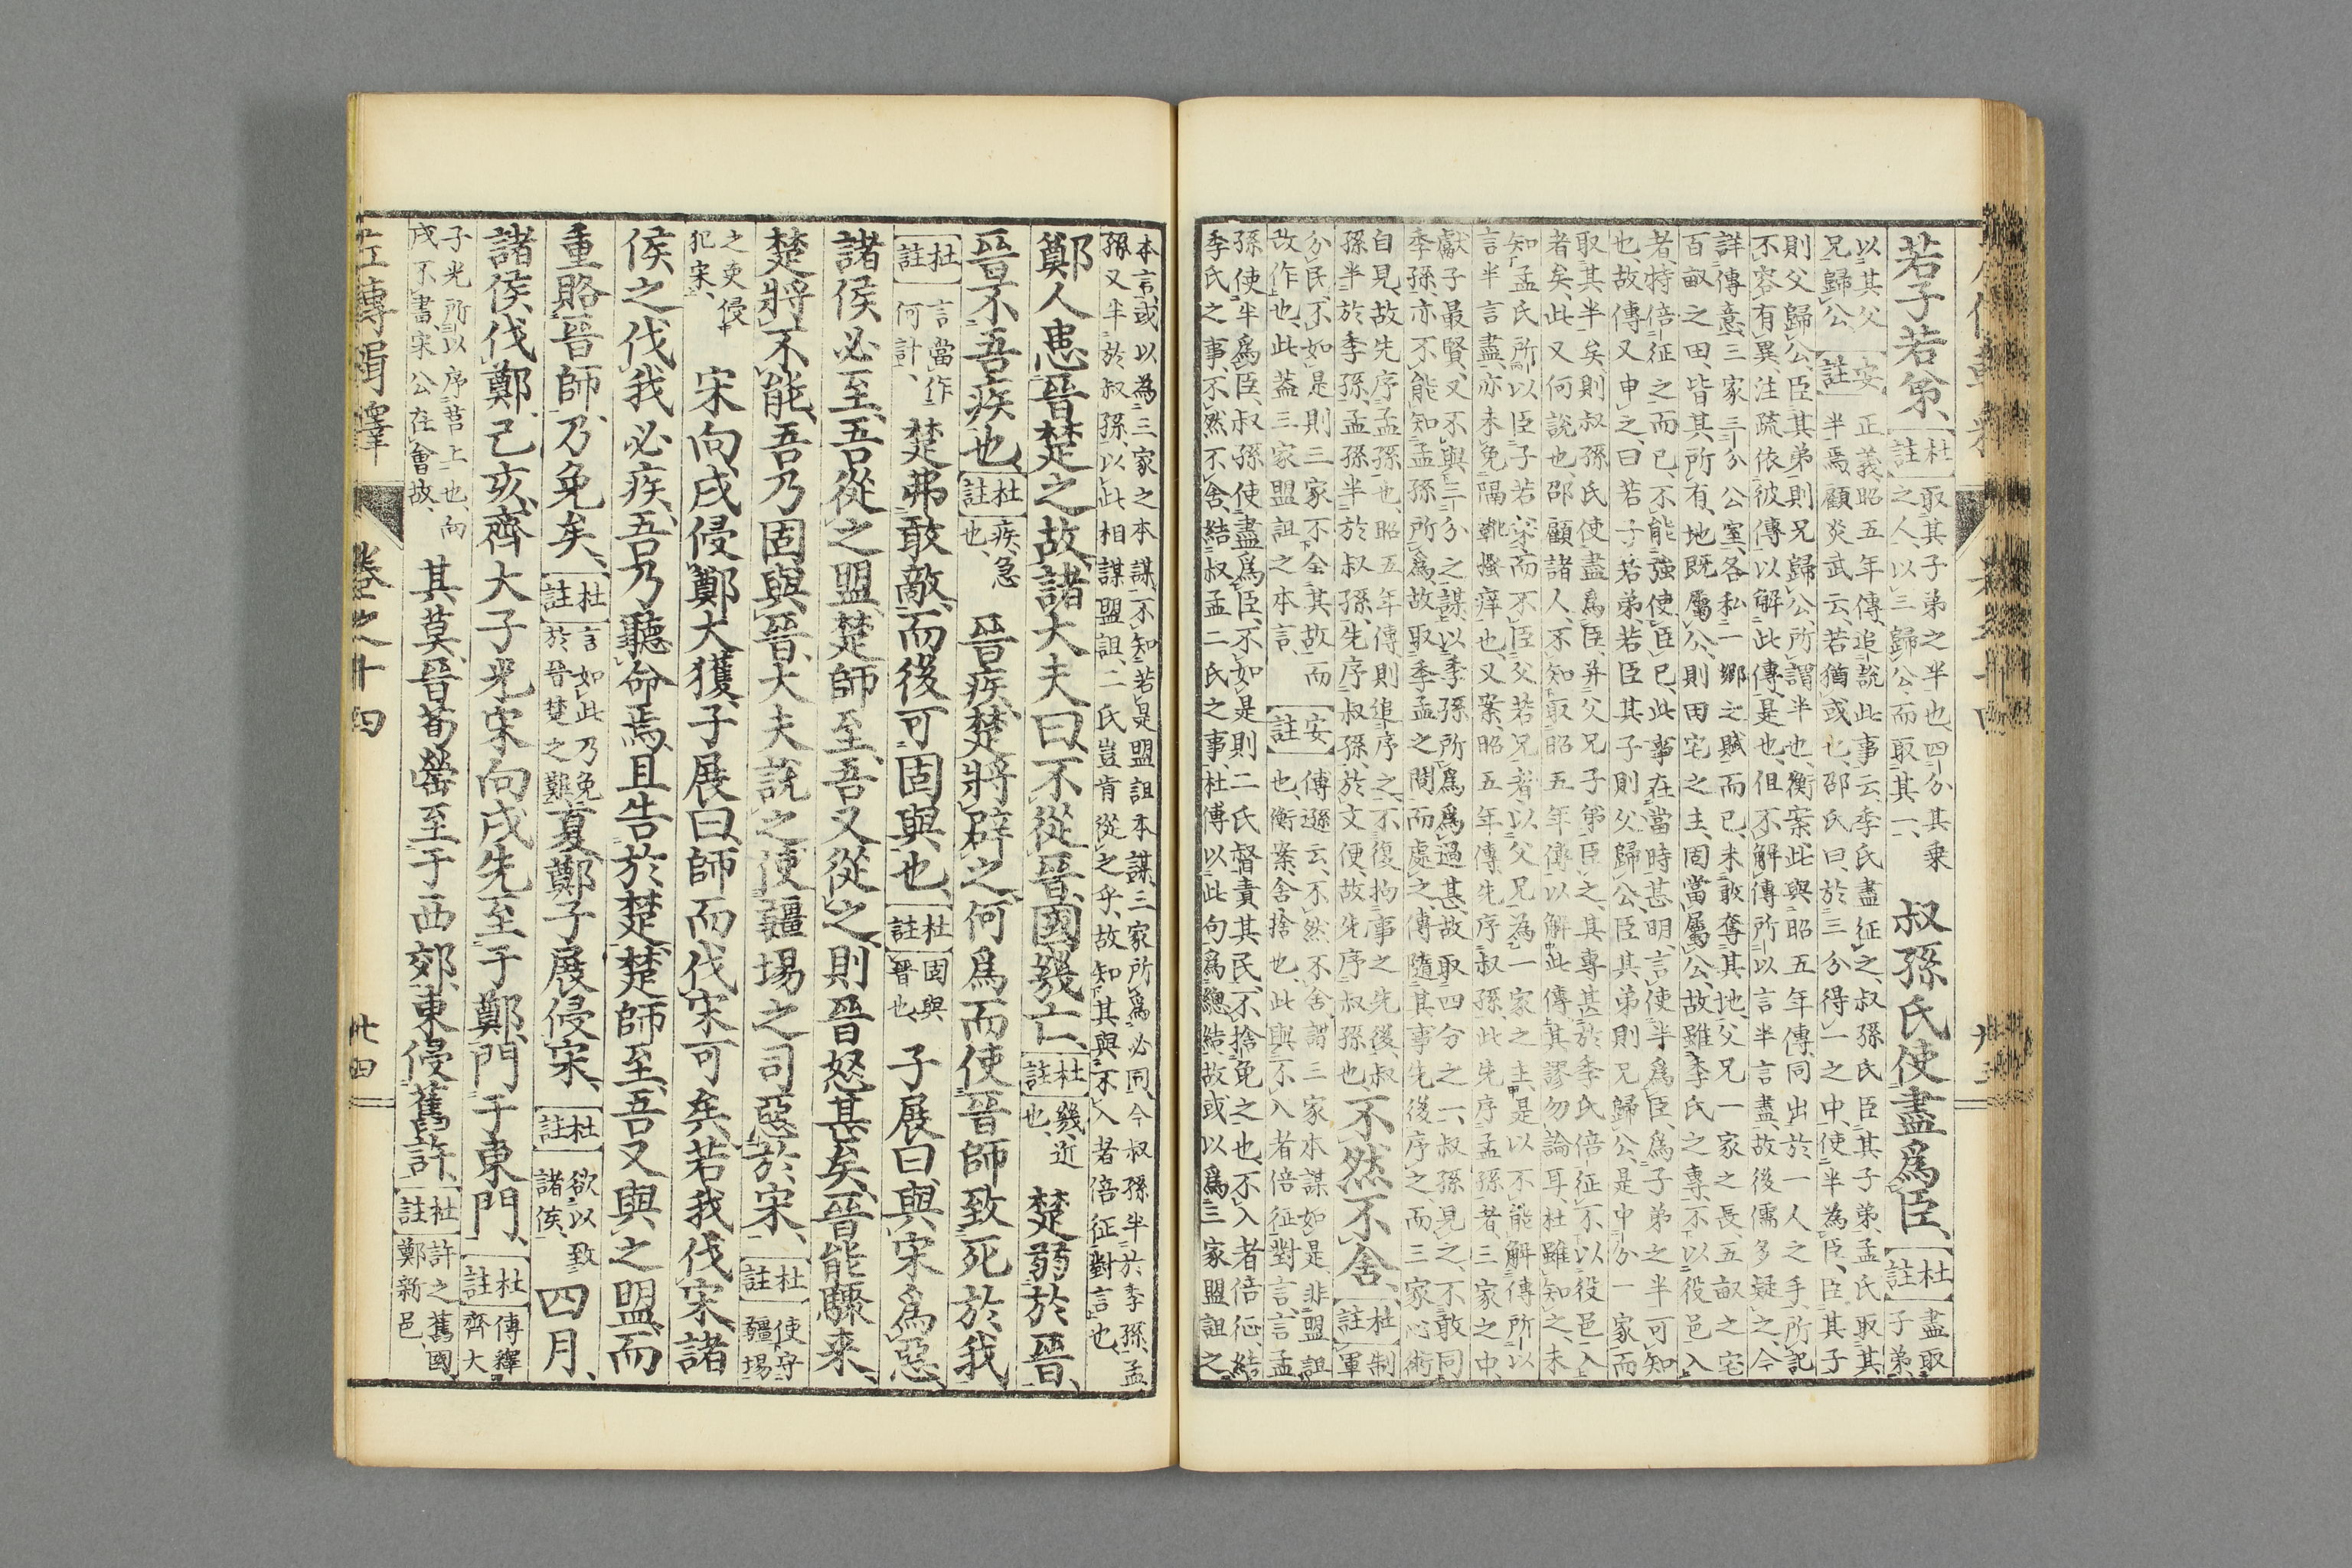 若子若弟、【杜註】取其子弟之半也、四分其乗之人、以三歸公、而取其一、叔孫氏使盡爲臣、【杜註】盡取子弟、
以其父兄歸公、【安註】正義、昭五年傳、追説此事云、季氏盡征之、叔孫氏臣其子弟、孟氏取其半焉、顧炎武云、若猶或也、邵氏曰、於三分得一之中、使半為臣、臣其子
則父歸公、臣其弟則兄歸公、所謂半也、衡案、此與昭五年傳、同出於一人之手、所記不容有異、注疏依彼傳以解此傳、是也、但不解傳所以言半言盡、故後儒多疑之、今
詳傳意、三家三分公室、各私一鄉之賦而已、未敢奪其地、父兄一家之長、五畝之宅百畝之田、皆其所有、地既屬公、則田宅之主、固當屬公、故雖季氏之專、不以役邑入
者、特倍征之而已、不能強使臣已、此事在當時甚明、言使半爲臣、爲子弟之半可知也、故傳又申之、曰若子若弟、若臣其子則父歸公、臣其弟則兄歸公、是中分一家而
取其半矣、則叔孫氏使盡爲臣、并父兄子弟臣之、其專甚於季氏倍征不以役邑入者矣、此又何説也、邵顧諸人、不知取昭五年傳以解此傳、其謬勿論耳、杜雖知之、未
知孟氏所以臣子若弟、而不臣父若兄者、以父兄為一家之主、是以不能解傳所以言半言盡、亦未免隔靴搔痒也、又案、昭五年傳、先序叔孫、此先序孟孫者、三家之中、
獻子最賢、又不與三分之謀、以季孫所爲爲過甚、故取四分之一、叔孫見之、不敢同季孫、亦不能知孟孫所爲、故取季孟之間而處之、傳隨其事先後序之、而三家心術
自見、故先序孟孫也、昭五年傳則追序之、不復拘事之先後、叔孫半於季孫、孟孫半於叔孫、先序叔孫、於文便、故先序叔孫也、不然不舍、【杜註】制軍
分民、不如是、則三家不全其故、而改作也、此蓋三家盟詛之本言、【安註】傳遜云、不然不舍、謂三家本謀如是、非盟詛也、衡案、舍、捨也、此與不入者倍征對言、言孟
孫使半爲臣、叔孫使盡爲臣、不如是則二氏督責其民、不捨免之也、不入者倍征、結季氏之事、不然不舍、結叔孟二氏之事、杜傅以此句爲總結、故或以爲三家盟詛之
本言、或以為三家之本謀、不知若是盟詛本謀、三家所爲必同、今叔孫半於季孫、孟孫又半於叔孫、以此相謀盟詛、二氏豈肯從之乎、故知其與不入者倍征對言也、
鄭人患晉楚之故、諸大夫曰、不從晉、國幾亡、【杜註】幾、近也、楚弱於晉、
晉不吾疾也、【杜註】疾、急也、晉疾、楚將辟之、何爲而使晉師致死於我、
【杜註】言當作何計、楚弗敢敵、而後可固與也、【杜註】固與晉也、子展曰、與宋爲惡、
諸侯必至、吾從之盟、楚師至、吾又從之、則晉怒甚矣、晉能驟来、
楚將不能、吾乃固與晉、大夫説之、使疆埸之司惡於宋、【杜註】使守疆埸
之吏侵犯宋、宋向戌侵鄭、大獲、子展曰、師而伐宋可矣、若我伐宋、諸
侯之伐我必疾、吾乃聽命焉、且告於楚、楚師至、吾又與之盟、而
重賂晉師、乃免矣、【杜註】言如此乃免於晉楚之難、夏、鄭子展侵宋、【杜註】欲以致諸侯、四月、
諸侯伐鄭、己亥、齊大子光、宋向戌、先至于鄭、門于東門、【杜註】傳釋齊大
子光所以序莒上也、向戌不書、宋公在會故、其莫、晉荀罃至于西郊、東侵舊許、【杜註】許之舊國、鄭新邑、
左傳輯釋　卷之十四　卄四